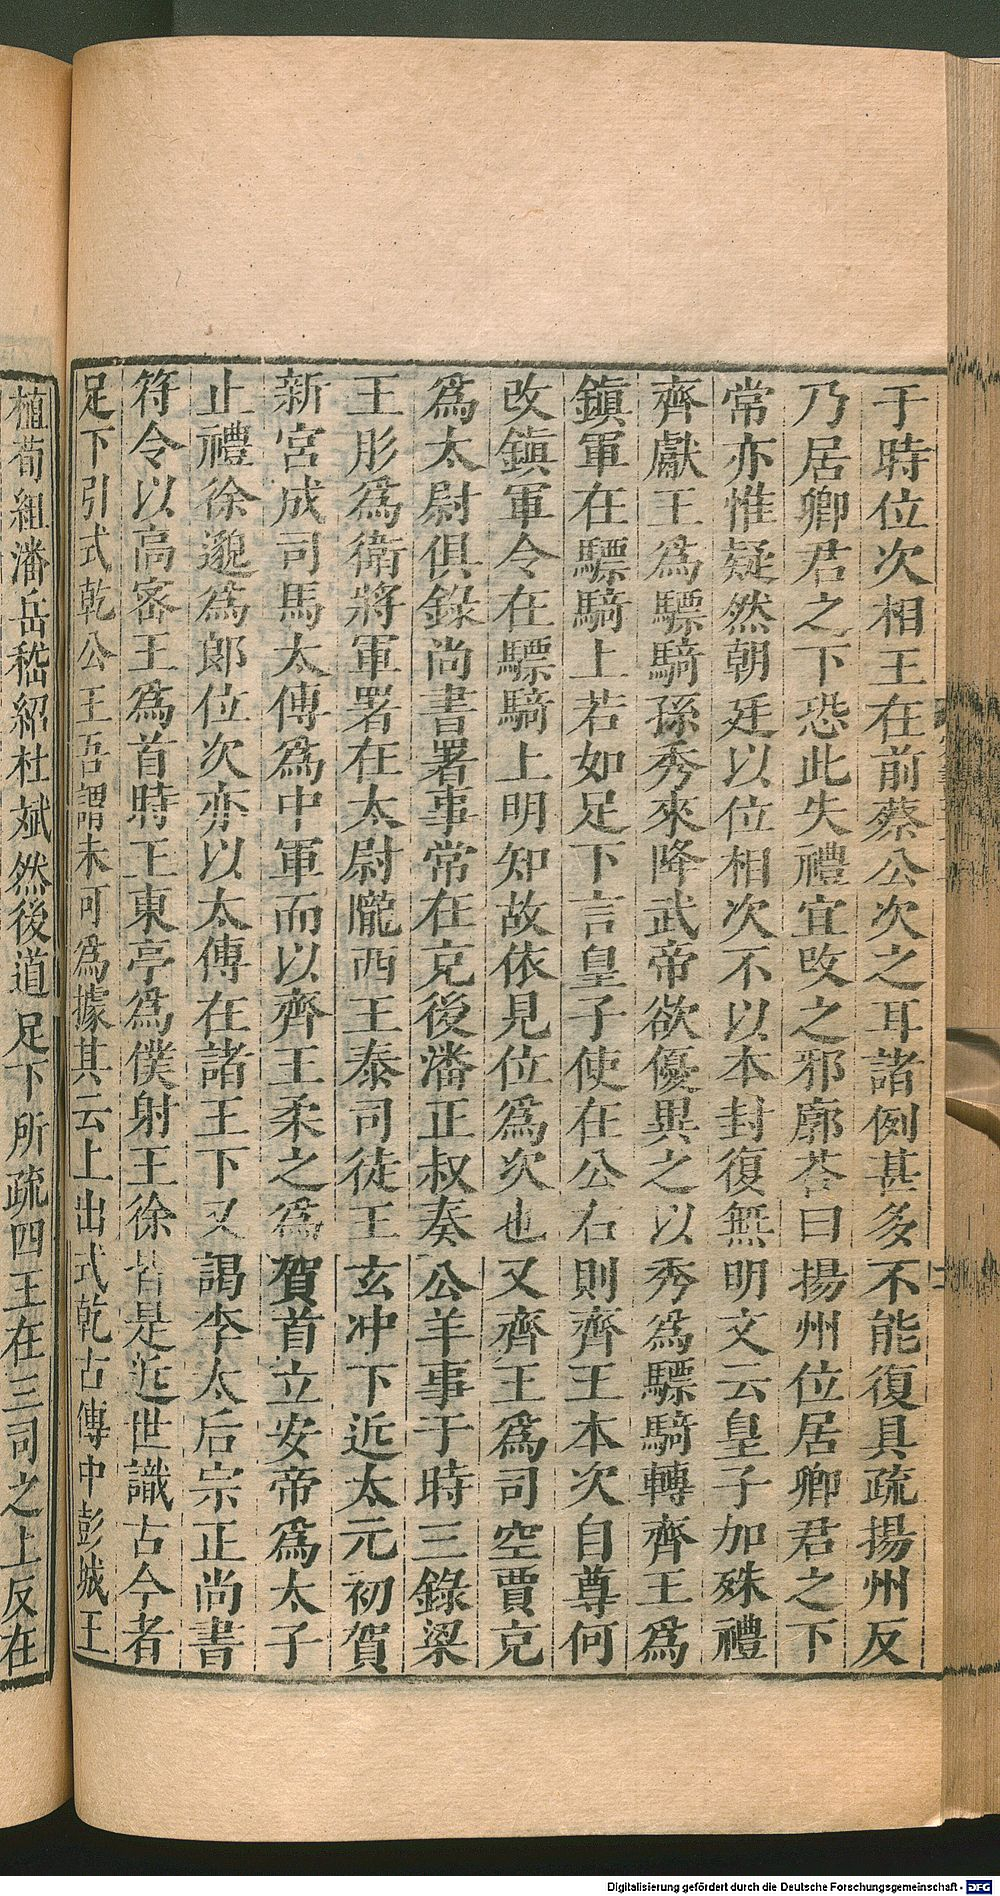 于時位次相王在前蔡公次之耳諸例甚多不能復具疏揚州反
乃居卿君之下恐此失禮宜改之邪廓荅曰揚州位居卿君之下
常亦惟疑然朝廷以位相次不以本封復無明文云皇子加殊禮
齊獻王為驃騎孫秀來降武帝欲優異之以秀為驃騎轉齊王為
鎮軍在驃騎上若如足下言皇子使在公右則齊王本次自尊何
改鎮軍令在驃騎上明知故依見位為次也又齊王為司空賈充
為太尉俱錄尚書署事常在充後潘正叔奏公羊事于時三錄梁
王肜為衛將軍署在太尉隴西王泰司徒王玄冲下近太元初賀
新宮成司馬太傅為中軍而以齊王柔之為賀首立安帝為太子
止禮徐邈為郎位次亦以太傅在諸王下又謁李太后宗正尚書
符令以高密王為首時王東亭為僕射王徐皆是近世識古今者
足下引式乾公王吾謂未可為據其云上出式乾古傳中彭城王
植荀組潘岳嵇紹杜斌然後道足下所疏四王在三司之上反在
Digitalisierung gefördert durch die Deutsche Forschungsgemeinschaft - DFG